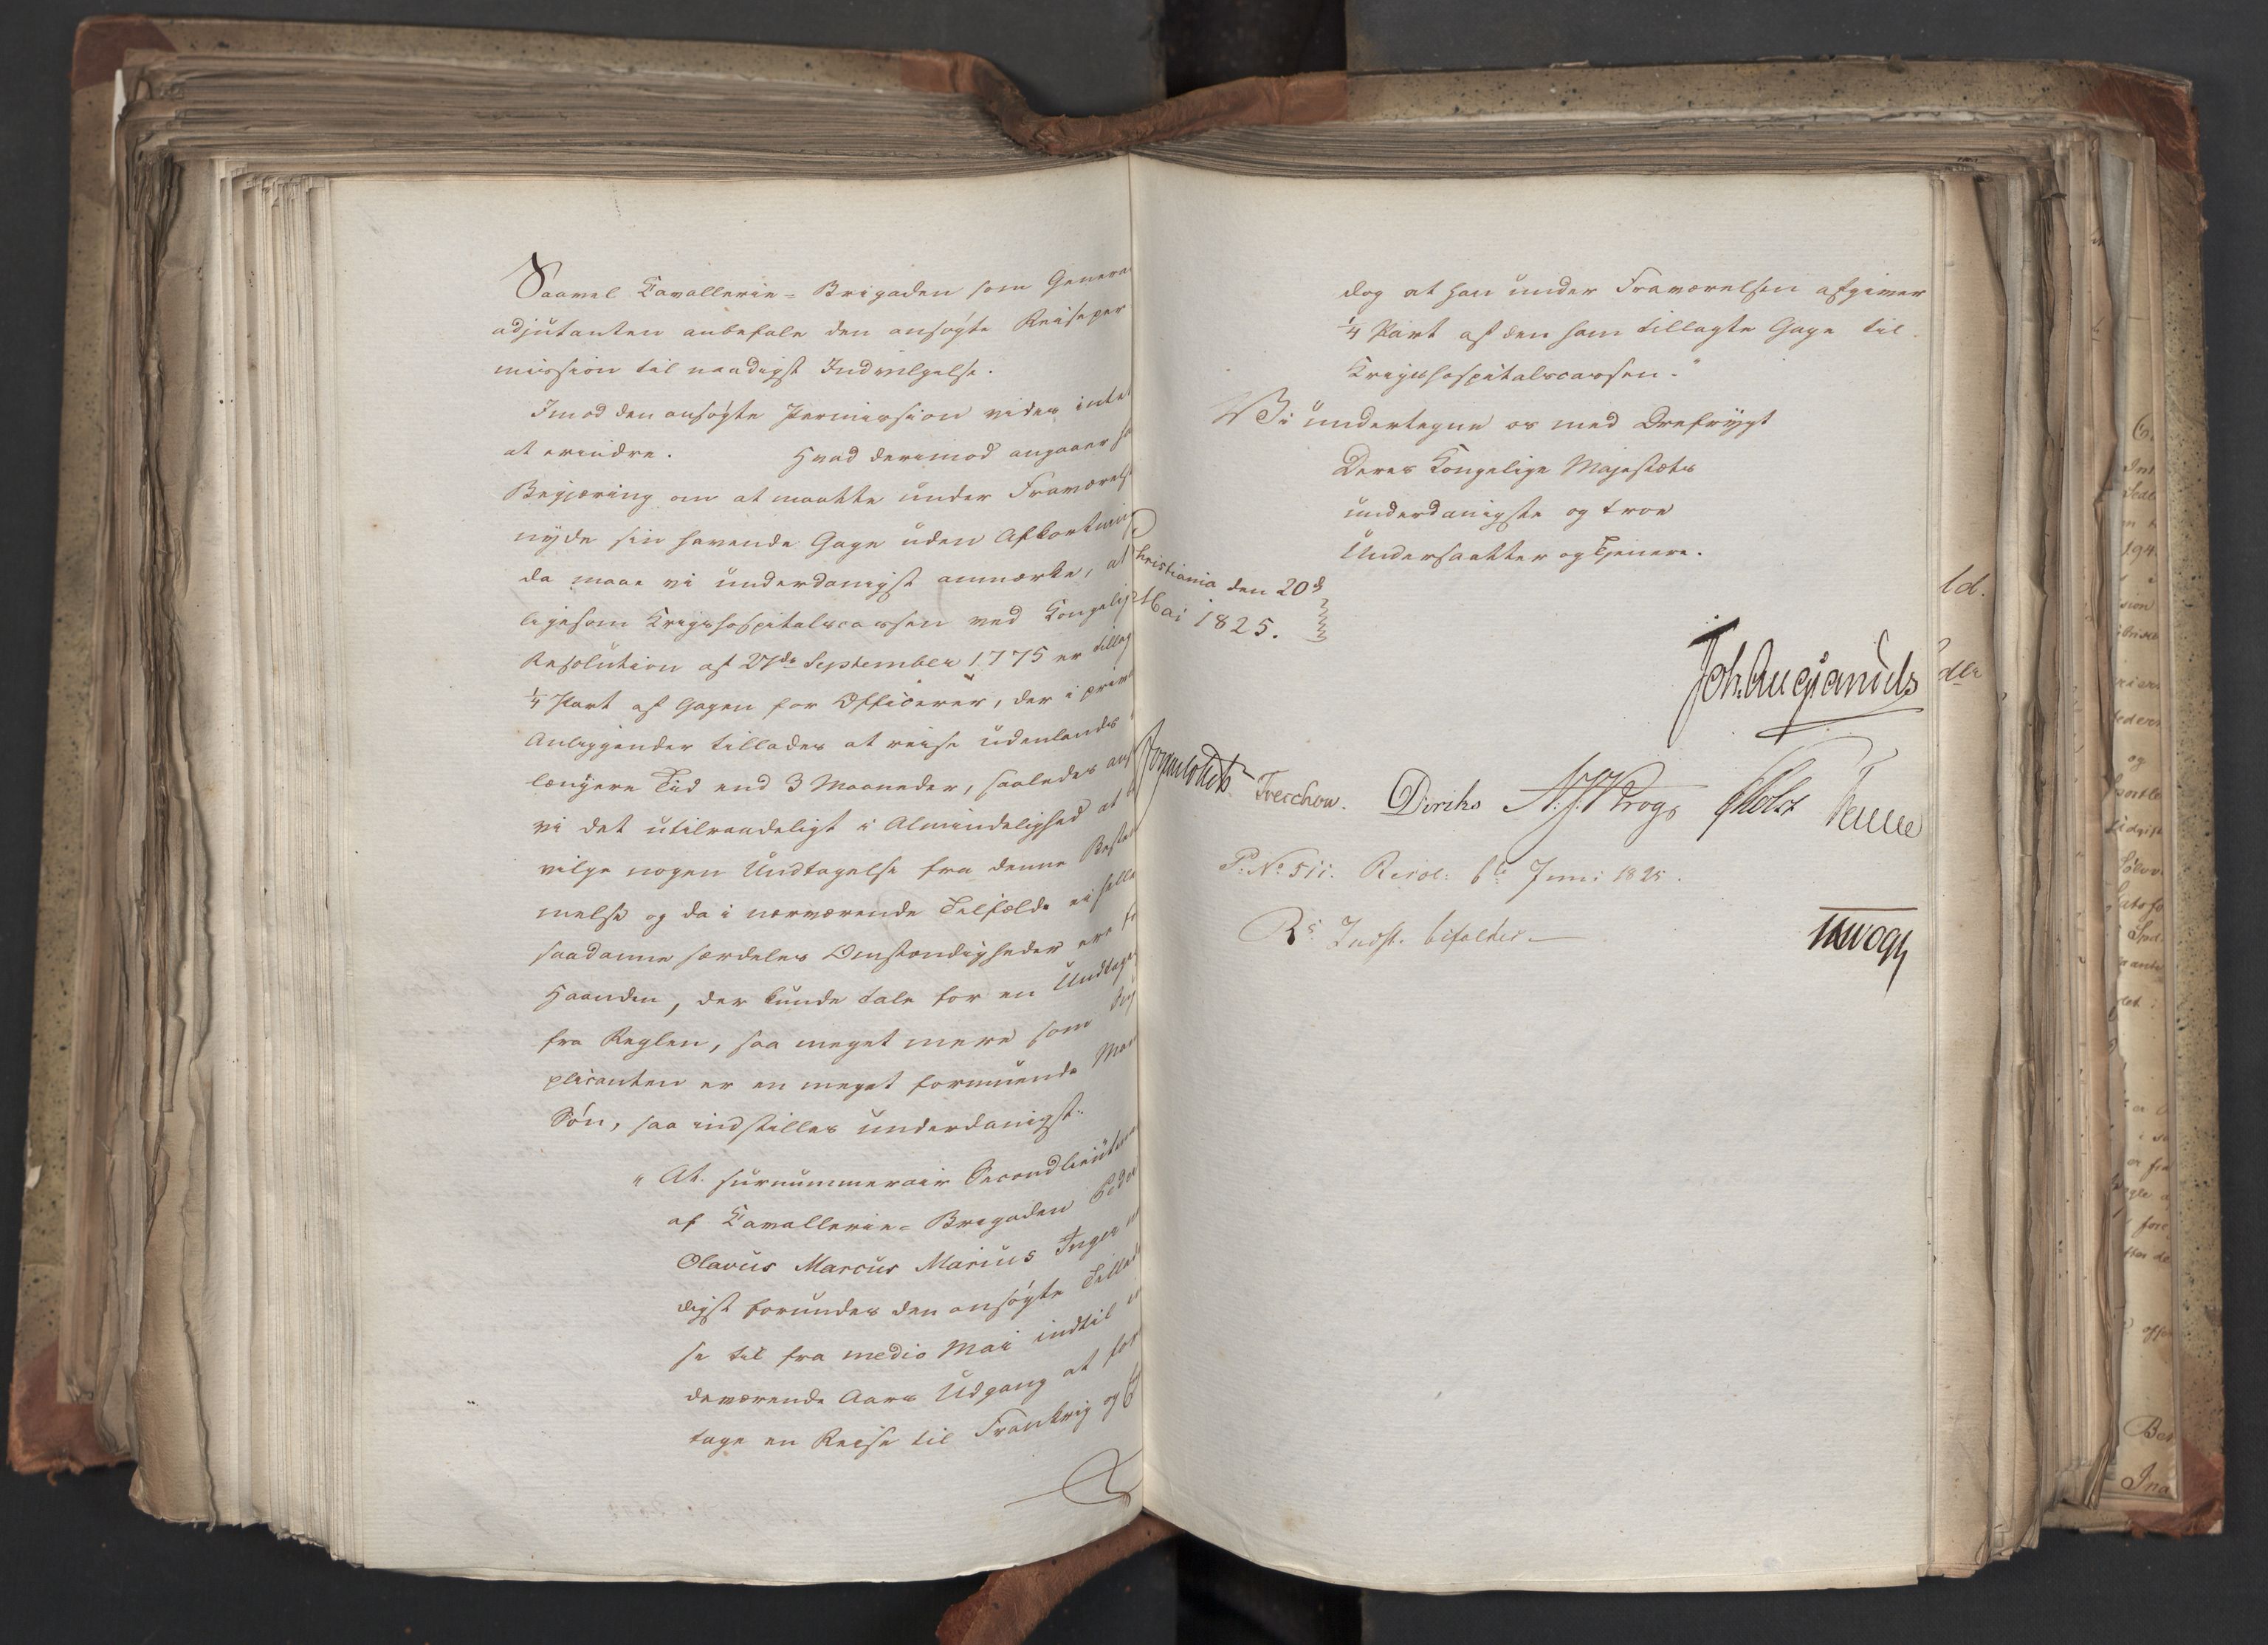 Saavel Cavallerie= Brigaden som General
adjutanten anbefale den ansøgte Reiseper
mission til naadigst Indvilgelse.
Imod den ansøgte Permission vides intet
at erindre. Hvad derimod angaaer
Begjæring om at maatte under Fraværelse
nyde sin havende Gage uden Afkortning
da maae vi underdanigst anmærke, at
ligesom Krigshospitalscassen ved Kongelig
Resolution af 27de September 1775 er tillagt
1/4 Part af Gagen for Officerer, der i
Anliggender tillades at reise udenlands
længere Tid end 3 Maaneder, saaledes
vi det utilraadeligt i Almindelighed at
vilge nogen Undtagelse fra denne Bestem
melse og da i nærværende Tilfælde ei heller
saadanne særdeles Omstændigheder ere for
Haanden, der kunde tale for en Undtagelse
fra Reglen, saa meget mere som Sup
plicanten er en meget formuende Mands
Søn, saa indstilles underdanigst:
" At surnummerair Secondlieutenant
af Cavallerie= Brigaden Peder
Olavus Marcus Marius Inger
digst forundes den ansøgte Tilladel
se til fra medio Mai indtil
deværende Aars Udgang at fore
tage en Reise til Frankrig og
dog at han under Fraværelsen afgiver
1/4 Part af den ham tillagte Gage til
Krigshospitalscassen."
Vi undertegne os med Ærefrygt
Deres Kongelige Majestæts
underdanigste og troe
Undersaatter og Tjenere.
Christiania den 20de
Mai 1825.
Joh. Aug Sandels
Sommerhielm Treschow. Diriks N. J. Krogh Holst Fasting
P. No 511. Resol: 6te Juni 1825.
Rs Indst. bifaldes